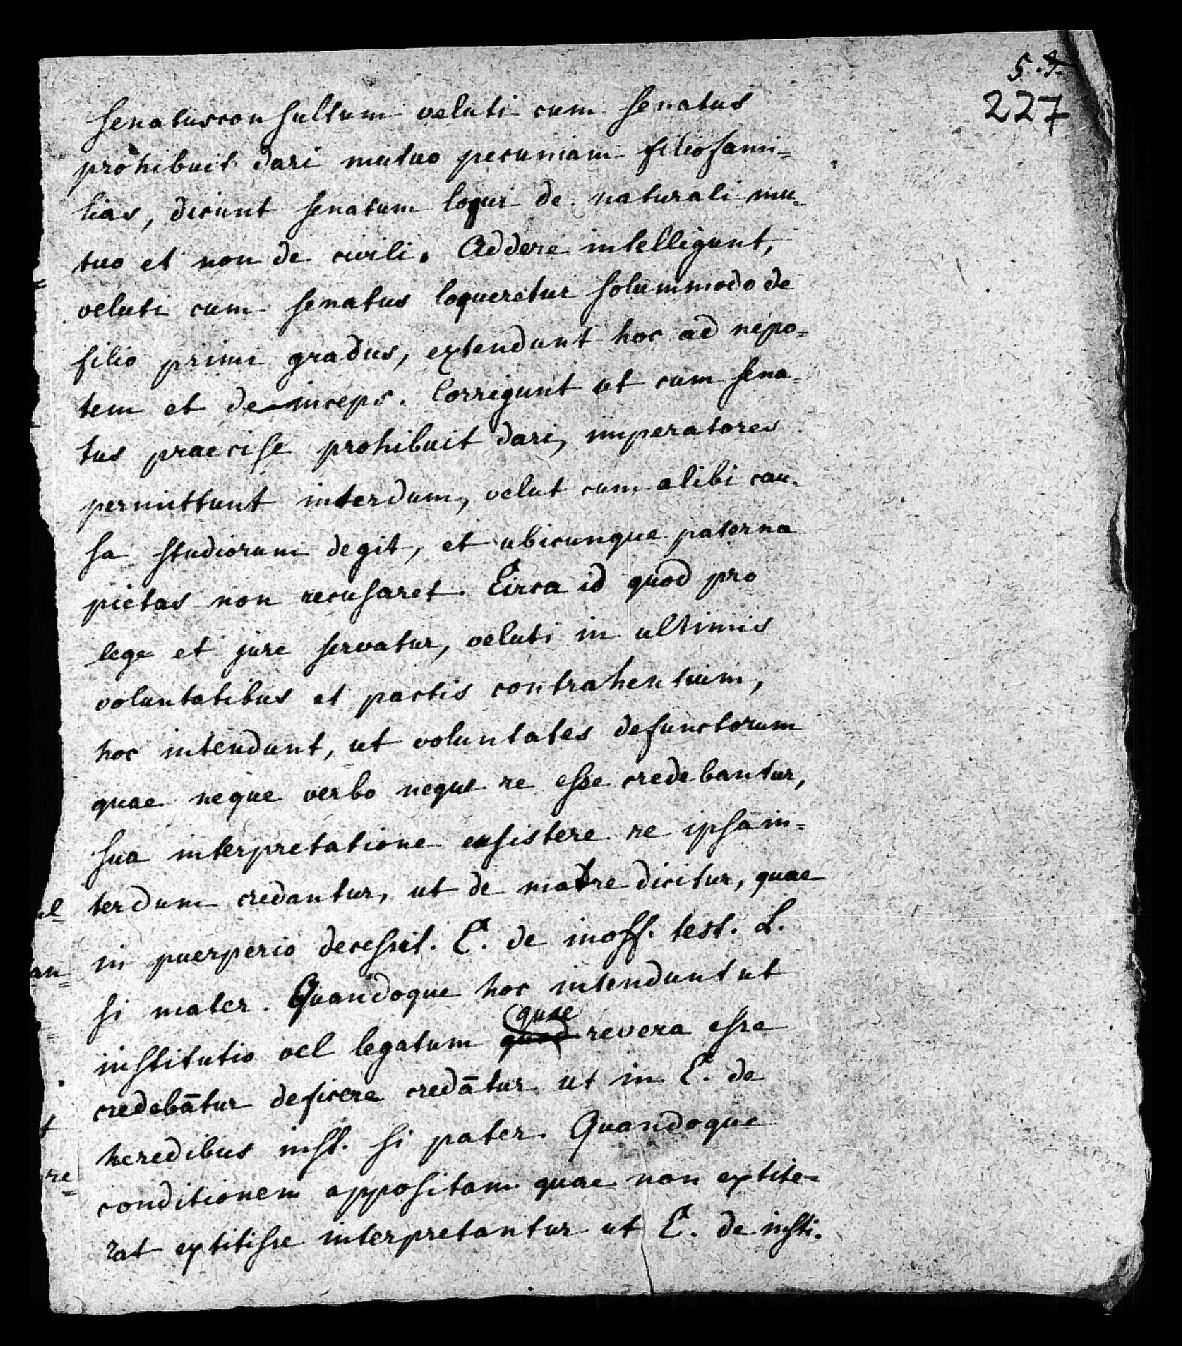 5.J.
227
senatusconsultum veluti cum senatus
prohibuit dari mutuo pecuniam filiofami=
lias, dicunt senatum loqui de naturali mu-
tuo et non de civili. Addere intelligunt,
veluti cum senatus loqueretur solummodo de
filio primi gradus, extendunt hoc ad nepo=
tem et deinceps. Corrigunt ut cum sena-
tus praecise prohibuit dari, imperatores
permittunt interdum, velut cum alibi cau-
sa studiorum degit, et ubicunque paterna
pietas non recusaret. Circa id quod pro
lege et jure servatur, veluti in ultimis
voluntatibus et pactis contrahentium,
hoc intendunt, ut voluntates defunctorum
quae neque verbo neque re esse credebantur,
sua interpretatione exsistere re ipsa in=
terdum credantur, ut de matre dicitur, quae
in puerperio decessit. C. de inoff. test. L.
si mater. Quandoque hoc intendunt ut
quae
institutio vel legatum quod revera esse
credebātur deficere credātur ut in C. de
heredibus inst. si pater. Quandoque
conditionem appositam quae non extite-
rat extitisse interpretantur ut C. de insti.